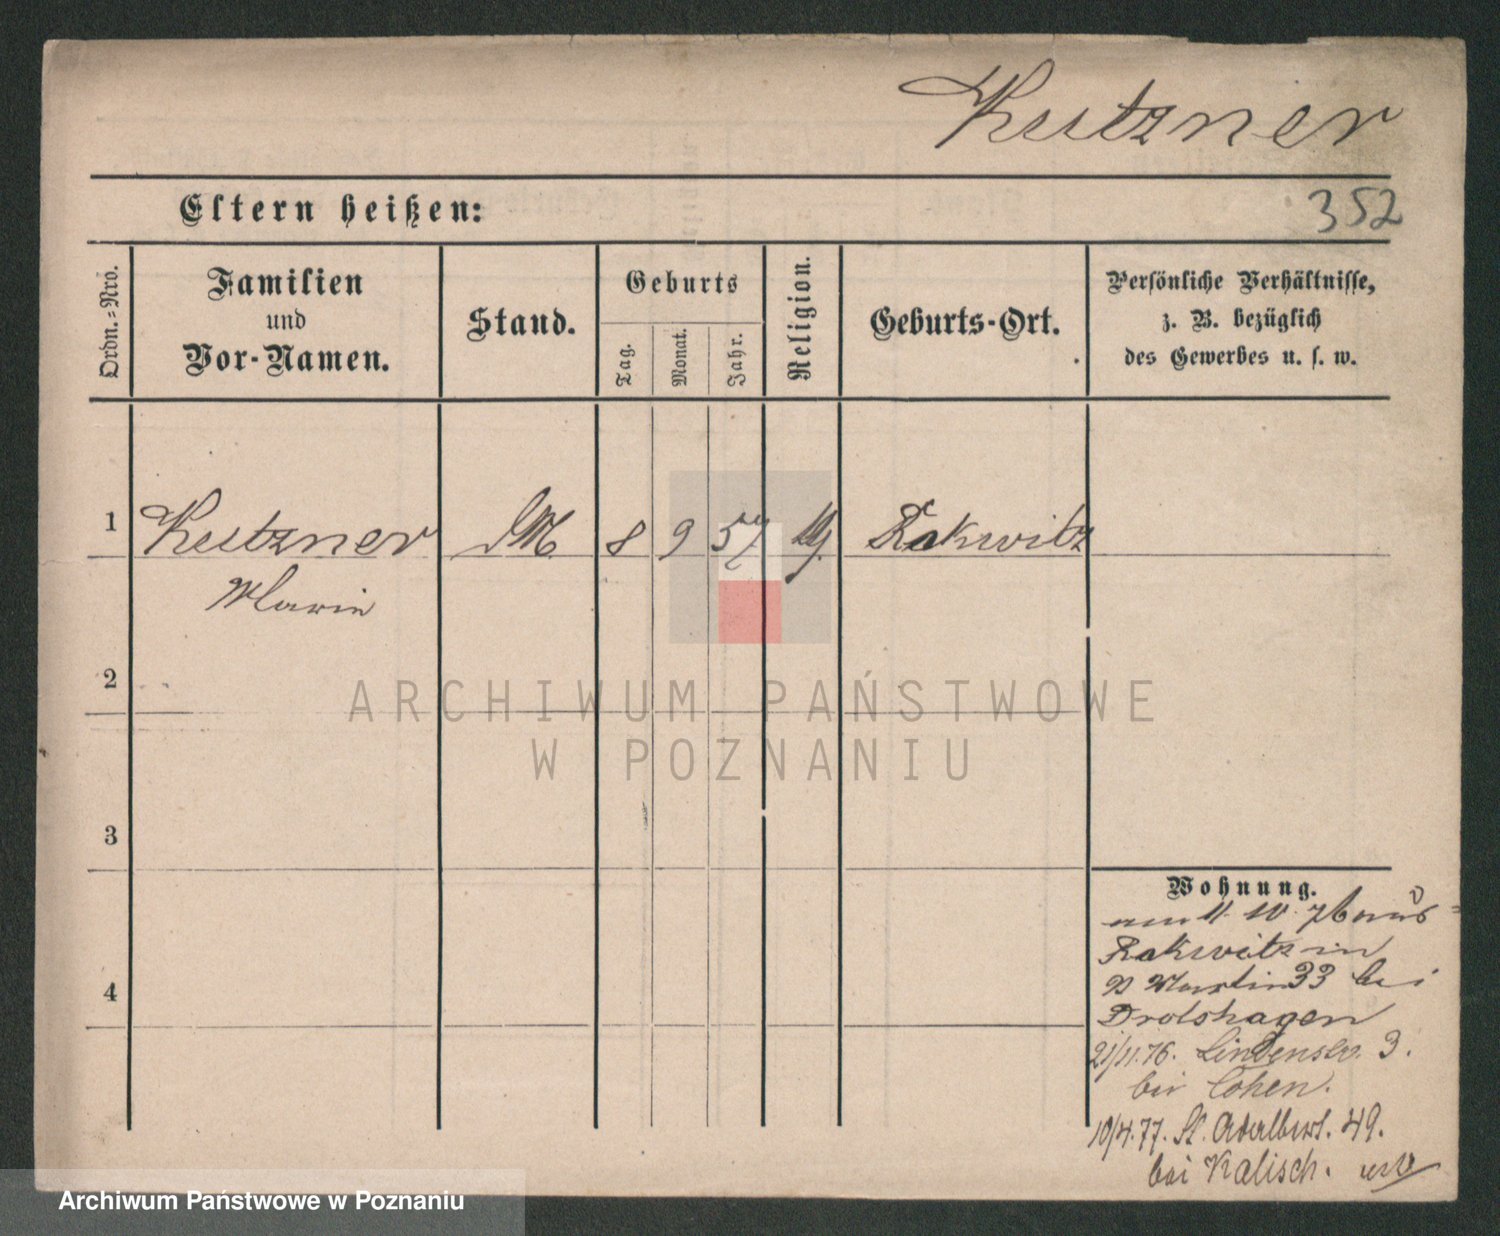 Kutzner
352
Eltern heißen:
Ordn.=Nro.
Familien
und
Vor-Namen.
Stand.
Geburts
Tag.
Monat.
Jahr.
Religion.
Geburts-Ort.
Persönliche Verhältnisse,
z. B. bezüglich
des Gewerbes u. s. w.
1
Kutzner
8
9
57
Rakwitz
Marie
2
ARCHIWUM PAŃSTWOWE
W POZNANIU
3
Wohnung.
am 11. 10. 76 aus
Rakwitz in
Martin 33 bei
4
Drolshagen
21/11. 76. Lindenstr. 3.
bei Cohen.
10/4. 77. St. Adalbert. 49.
bei Kalisch.
Archiwum Państwowe w Poznaniu